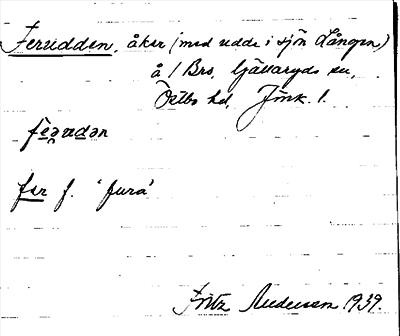 Feruddden, åker (med udde i sjön Lången)
å 1 Bro, Gällaryds sn,
Östbo hd, Jönk. l.
fèɘ̯rudən
fɘr f. 'fura'
Fritz Andersson 1939.